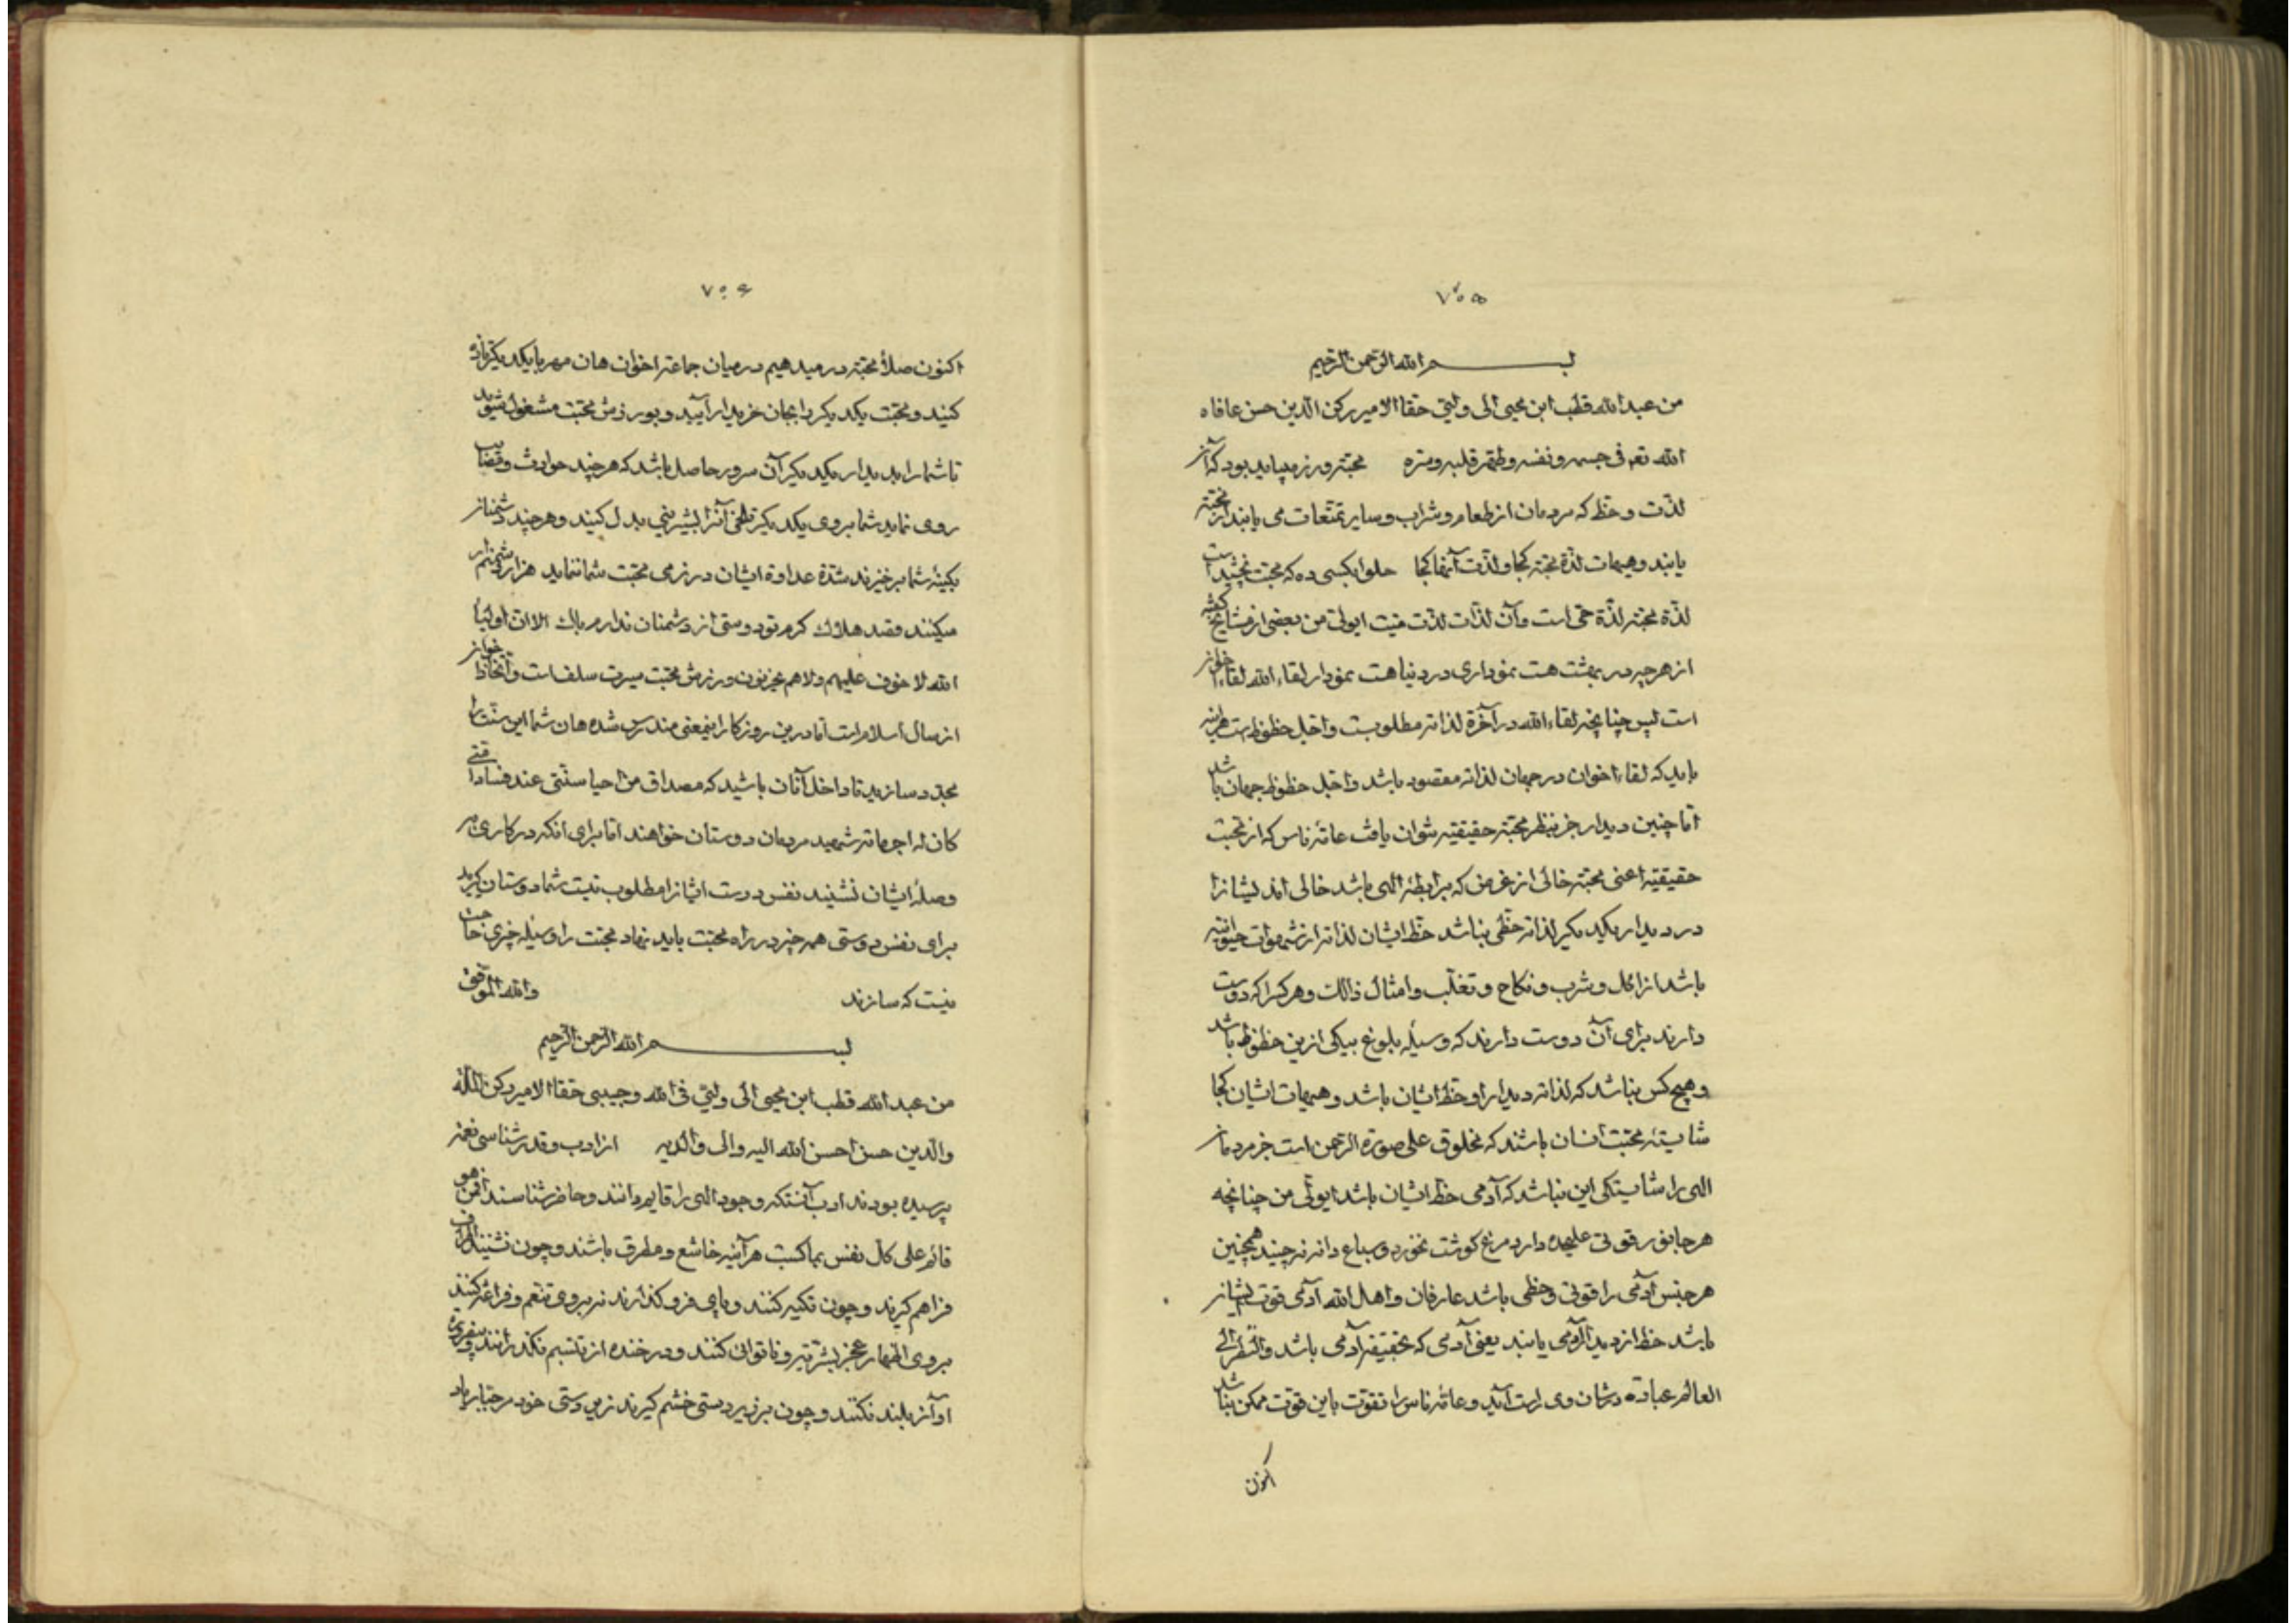 ۷۰۵
بسم الله الرحمن الرحیم
من عبد الله قطب ابن محیی الی ولیی حقا الامیر رکن الدین حسن عافاه
الله تعم فی جسمه و نفسه و طهّر قلبه و سرّه محبّة ورزمیباید بود که آنر
لذّت و حظ که مردمان از طعام و شراب و سایر تمتّعات می یابند از محبّة
یابند و هیهات لذّة محبّة کجا و لذّت آنها کجا حلوا بکسی ده که محبّت نچشیداست
لذّة محبّة لذّة حی است و آن لذّات لذّت میّت ایولیّ من بعضی از مشایخ گفته
از هرچه در بهشت هست نموداری در دنیا هست نمودار لقاء الله لقاء اخوان
است پس چنانچه لقاء الله در آخرة لذاته مطلوبست و اجلّ حظوظ است هرآینه
باید که لقاء اخوان در جهان لذاته مقصود باشد و اجلّ حظوظ جهان باشد
امّا چنین دیدار جز بنظر محبّة حقیقیّه نتوان یافت عامّه ناس که از محبّت
حقیقیّه اعنی محبّة خالی از غرض که برابطهٔ الهی باشد خالی اند ایشانرا
در دیدار یکدیگر لذاته حظّی نباشد حظّ ایشان لذاته از شهوات حیوانیّه
باشد از اکل و شرب و نکاح و تغلّب و امثال ذالک و هر کسرا که دوست
دارند برای آن دوست دارند که وسیلهٔ بلوغ بیکی ازین حظوظ باشد
و هیچ کس نباشد که لذاته دیدار او حظّ ایشان باشد و هیهات ایشان کجا
شایستهٔ محبّت انسان باشند که مخلوق علی صورة الرّحمن است جز مردمان
الهی را شایستگی این نباشد که آدمی حظّ ایشان باشد ایولیّ من چنانچه
هر جانور قوتی علیحده دارد مرغ کوشت نخورد و سباع دانه نچیند همچنین
هر جنس آدمی را قوتی و حظّی باشد عارفان و اهل الله آدمی قوت ایشان
باشد حظ از دیدار آدمی یابند یعنی آدمی که بحقیقة آدمی باشد و النّظر الی
العالم عبادة در شان وی راست آید و عامّه ناس را تقوّت باین قوت ممکن نباشد
اکنون
۷۰۶
اکنون صلاء محبّة در میدهیم در میان جماعة اخوان هان مهر با یکدیگر تازه
کنید و محبّت یکدیگر را بجان خریدار آیید و بورزش محبّت مشغول شوید
تا شما را بدیدار یکدیگر آن سرور حاصل باشد که هر چند حوادث و مصایب
روی نماید شما بروی یکدیگر تلخی آنرا بشیرینی بدل کنید و هر چند دشمنان
بکینهٔ شما برخیزند شدّة عداوة ایشان در نرمی محبّت شما ننماید هزار دشمنم ار
میکنند قصد هلاک کرم تو دوستی از دشمنان ندارم باک الا ان اولیاء
الله لا خوف علیهم و لا هم یحزنون ورزش محبّت سیرت سلف است و اتخاذ اخوان
از سال اسلام است امّا درین روزکار اینمعنی مندرس شده هان شما این سنّت را
مجدّد سازید تا داخل آنان باشید که مصداق من احیا سنّتی عند فساد امّتی
کان له اجر مائة شهید مردمان دوستان خواهند امّا برای انکه در کاری بر
وصلهٔ ایشان نشیند نفس دوست ایشانرا مطلوب نیست شما دوستان گیرید
برای نفس دوستی همه چیز در راه محبّت باید نهاد محبّت را وسیله چیزی ساختن
نیست که سازند والله الموفّق
بسم الله الرحمن الرحیم
من عبد الله قطب ابن محیی الی ولیی فی الله و حبیبی حقا الامیر رکن الملّة
والدّین حسن احسن الله الیه و الی والدیه از ادب و قدر شناسی نعمة
پرسیده بودند ادب آنستکه وجود الهی را قایم دانند و حاضر شناسند افمن هو
قائم علی کل نفس بما کسبت هرآینه خاشع و مطرق باشند و چون نشینند اطراف
فراهم گیرند و چون تکیه کنند و پای فرو کذارند نه بروی تنعّم و فراغه کنند
بروی اظهار عجز بشریّة و ناتوانی کنند و در خنده از تبسّم نگذرانند
و آواز بلند نکنند و چون بر زیر دستی خشم گیرند زیر دستی خود مر جبّار یاد